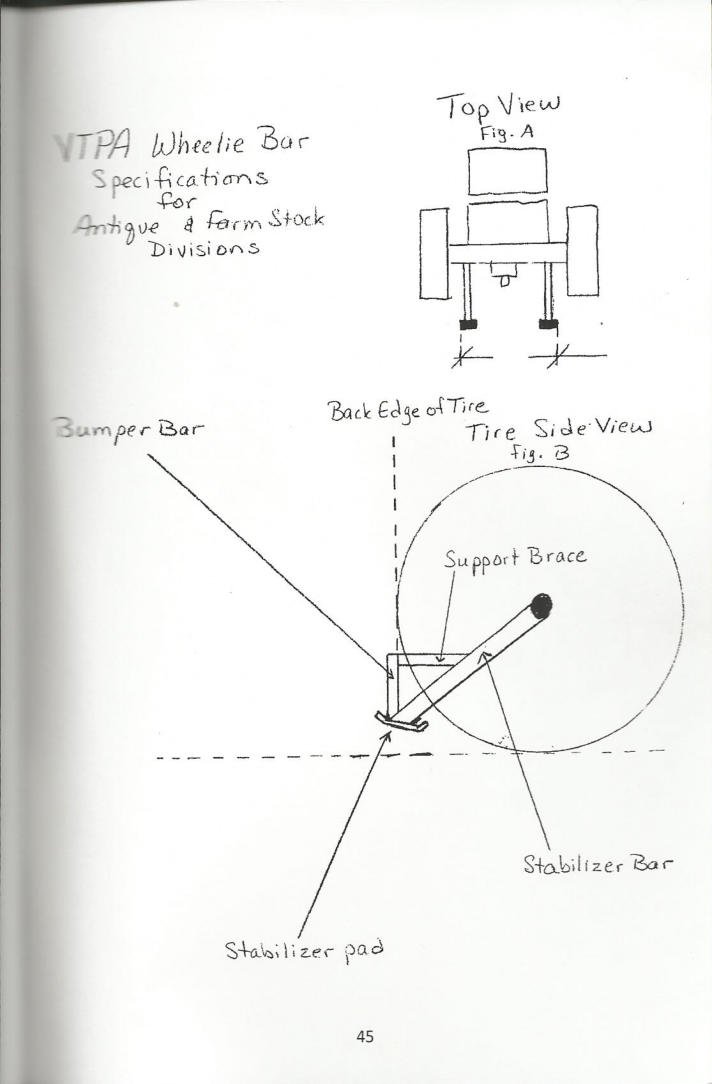 VTPA Wheelie Bar
Specifications
for
Antique & Farm Stock
Divisions
Top View
Fig. A
Back Edge of Tire
Tire Side View
Fig. B
Bumper Bar
Support Brace
Stabilizer Bar
Stabilizer pad
45